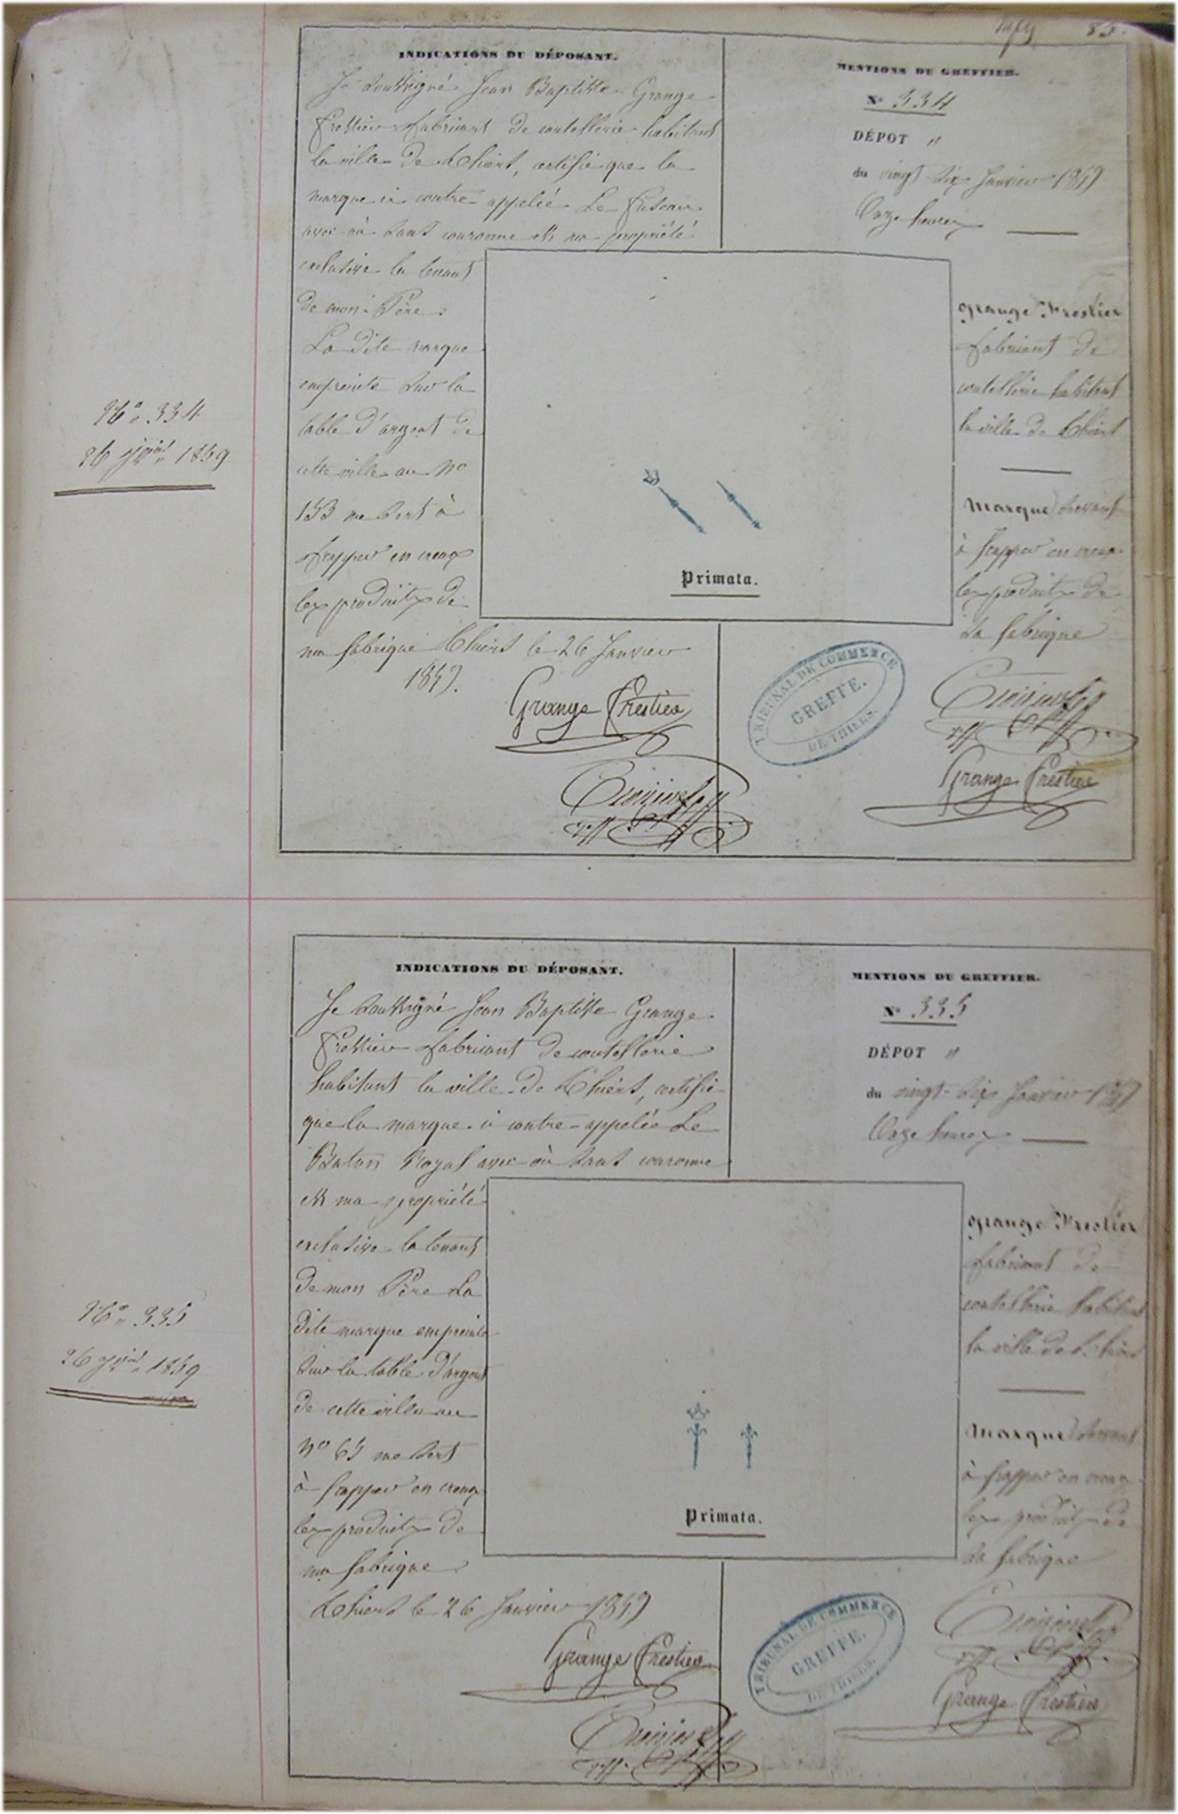 83.
INDICATIONS DU DÉPOSANT.
Je soussigné Jean Baptiste Grange
Prestier fabricant de coutellerie habitant
la ville de Thiers, certifie que la
marque ci contre appelée Le Fuseau
avec ou sans couronne est ma propriété
exclusive la tenant
de mon Père.
La dite marque
empreinte sur la
table d'argent de
cette ville au No
153 me sert à
frapper en creux
les produits de
ma fabrique Thiers le 26 Janvier
1859.
Grange Prestier
MENTIONS DU GREFFIER.
No 334
DÉPOT "
du vingt six Janvier 1859
Onze heures
Grange Prestier
fabricant de
coutellerie habitant
la ville de Thiers
Marque devant
à frapper en creux
les produits de
sa fabrique
Grange Prestier
Primata.
TRIBUNAL DE COMMERCE
GREFFE.
DE THIERS.
No 334
26 jer 1859
INDICATIONS DU DÉPOSANT.
Je soussigné Jean Baptiste Grange
Prestier fabricant de coutellerie
habitant la ville de Thiers, certifie
que la marque ci contre appelée Le
Baton Royal avec ou sans couronne
est ma propriété
exclusive la tenant
de mon Père La
dite marque empreinte
sur la table d'argent
de cette ville au
No 65 me sert
à frapper en creux
les produits de
ma fabrique
Thiers le 26 Janvier 1859
Grange Prestier
MENTIONS DU GREFFIER.
No 335
DÉPOT "
du vingt six Janvier 1859
Onze heures
Grange Prestier
fabricant de
coutellerie habitant
la ville de Thiers
Marque devant
à frapper en creux
les produits de
sa fabrique
Grange Prestier
Primata.
TRIBUNAL DE COMMERCE
GREFFE.
DE THIERS.
No 335
26 jer 1859